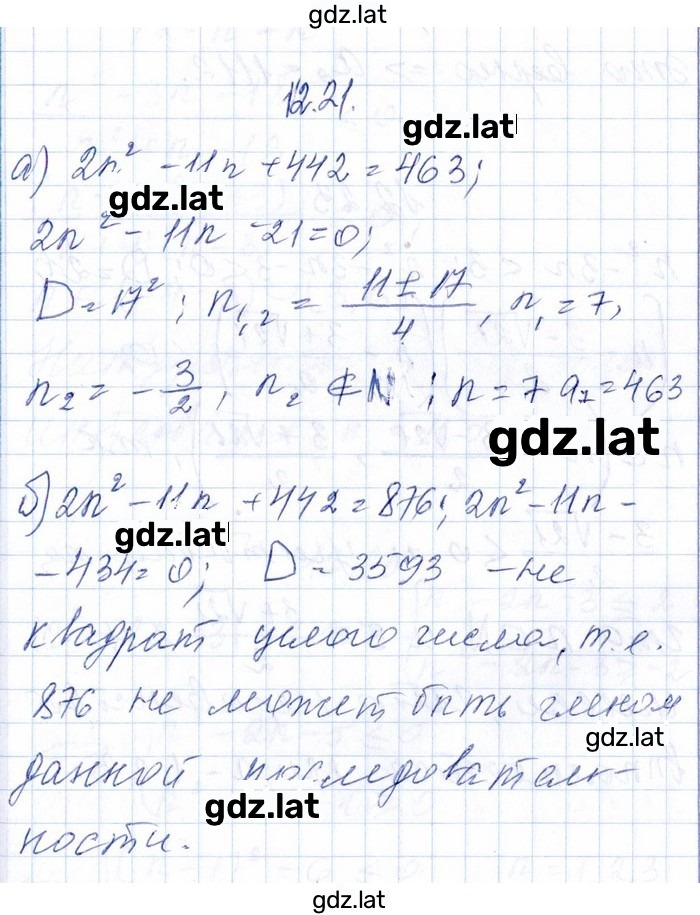 gdz.lat
12.21.
gdz.lat
а) 2n² - 11n + 442 = 463;
gdz.lat
2n² - 11n - 21 = 0;
D = 17²; n₁,₂ = (11 ± 17)/4, n₁ = 7,
n₂ = -3/2, n₂ ∉ N; n = 7 a₇ = 463
gdz.lat
б) 2n² - 11n + 442 = 876; 2n² - 11n -
gdz.lat
- 434 = 0; D = 3593 - не
квадрат целого числа, т.е.
876 не может быть членом
gdz.lat
данной последователь-
gdz.lat
ности.
gdz.lat